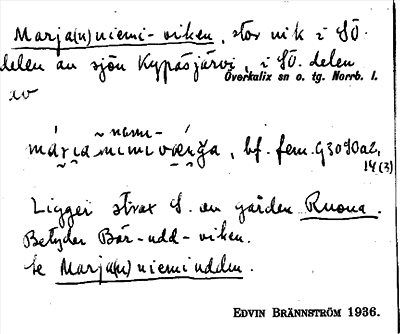 Marja(n)niemi-viken, stor vik i SÖ.
delen av sjön Kypäsjärvi, i SÖ. delen
Överkalix sn o. tg. Norrb. l.
av
~ niemi-
bf. fem. G3090a2,
14(3)
Ligger strax S. om gården Ruona.
Betyder Bär-udd-viken.
Se Marja(n)niemiudden.
EDVIN BRÄNNSTRÖM 1936.